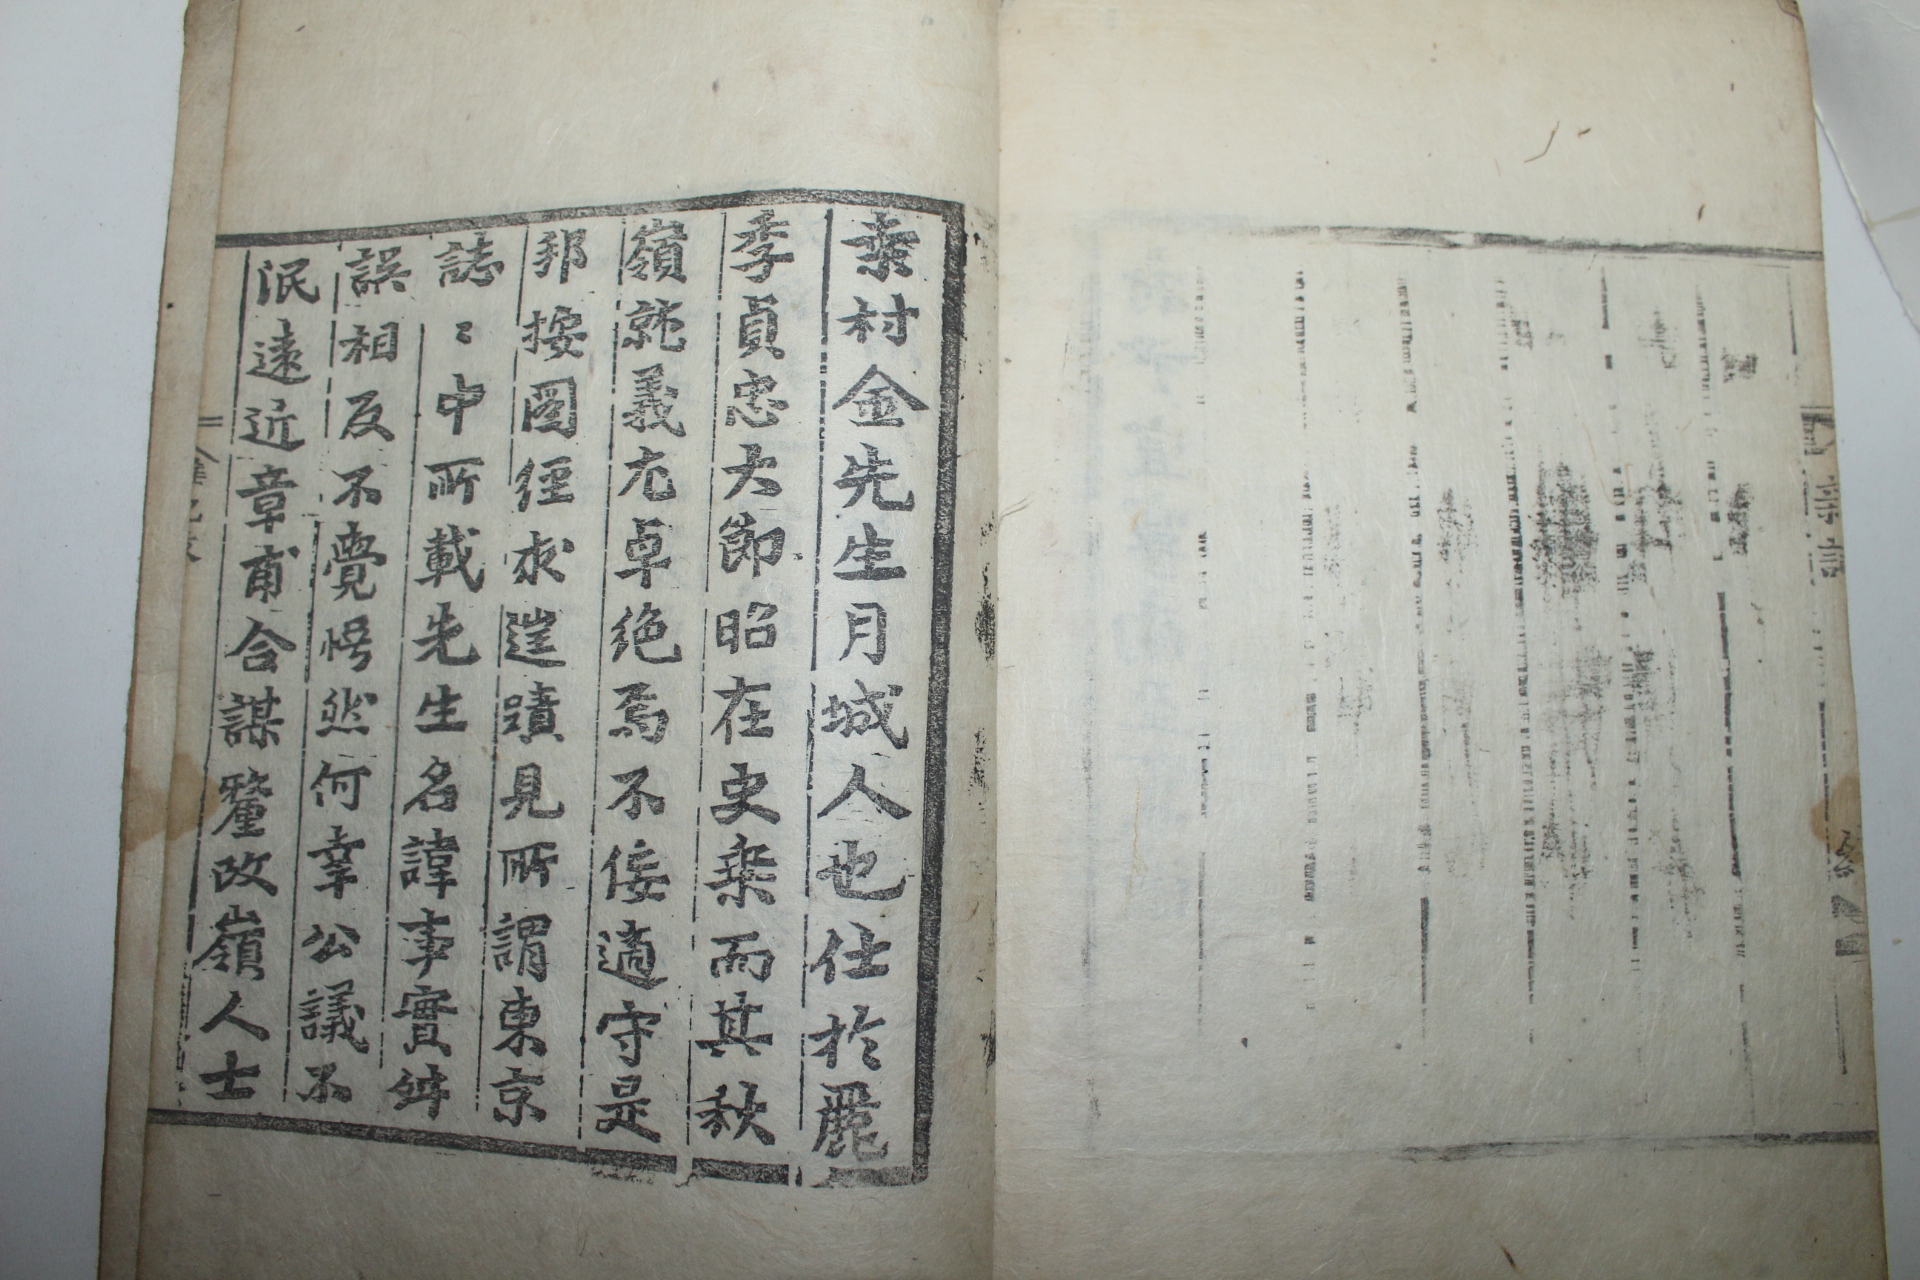 桑村金先生月城人也仕於麗
季貞忠大節昭在史乘而其秋
嶺就義尤卓絶焉不侫適守是
邦按圖徑求遑蹟見所謂東京
誌誌中所載先生名諱事實舛
誤相反不覺愕然何幸公議不
泯遠近章甫合謀釐改嶺人士